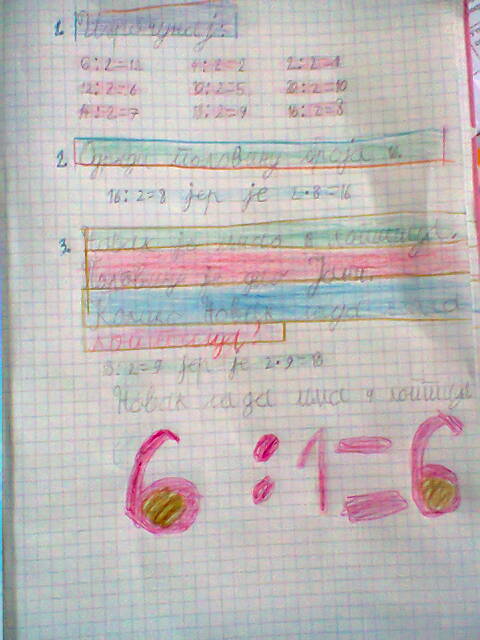 1. Израчунај:
6:2=12 4:2=2 2:2=1
12:2=6 10:2=5 20:2=10
14:2=7 18:2=9 16:2=8
2. Одреди половину броја 16.
16:2=8 јер је 2·8=16
3. Новак је имао кликера.
Половину је дао Јани.
Колико Новак сада има
18:2=9 јер је 2·9=18
Новак сада има 9
6:1=6